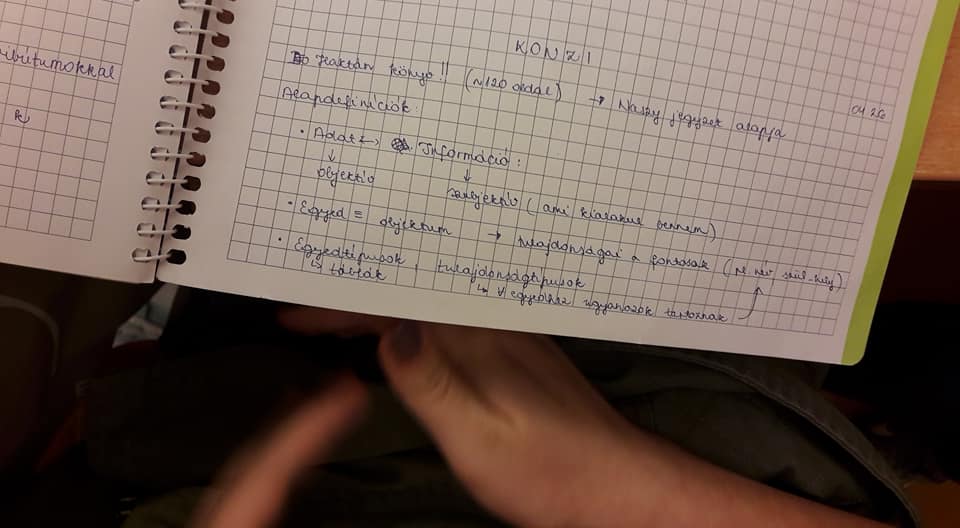 ibútumokkal
KONZI
04.26
Halász könyv!! (~120 oldal) → Nagy jegyzet alapja
Alapdefiníciók:
• Adat ↔ Információ:
↓ ↓
objektív szubjektív (ami kialakul bennem)
• Egyed ≡ objektum → tulajdonságai a fontosak (név szül-hely)
• Egyedtípusok, tulajdonságtípusok
↳ táblák ↳ ∀ egyedhez ugyanazok tartoznak